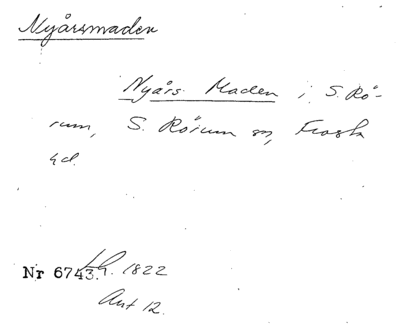 Nyårsmaden
Nyårs Maden i S. Rö-
rum, S. Rörum sn, Frosta
hd.
Nr 6743. Lh. 1822
Akt 12.